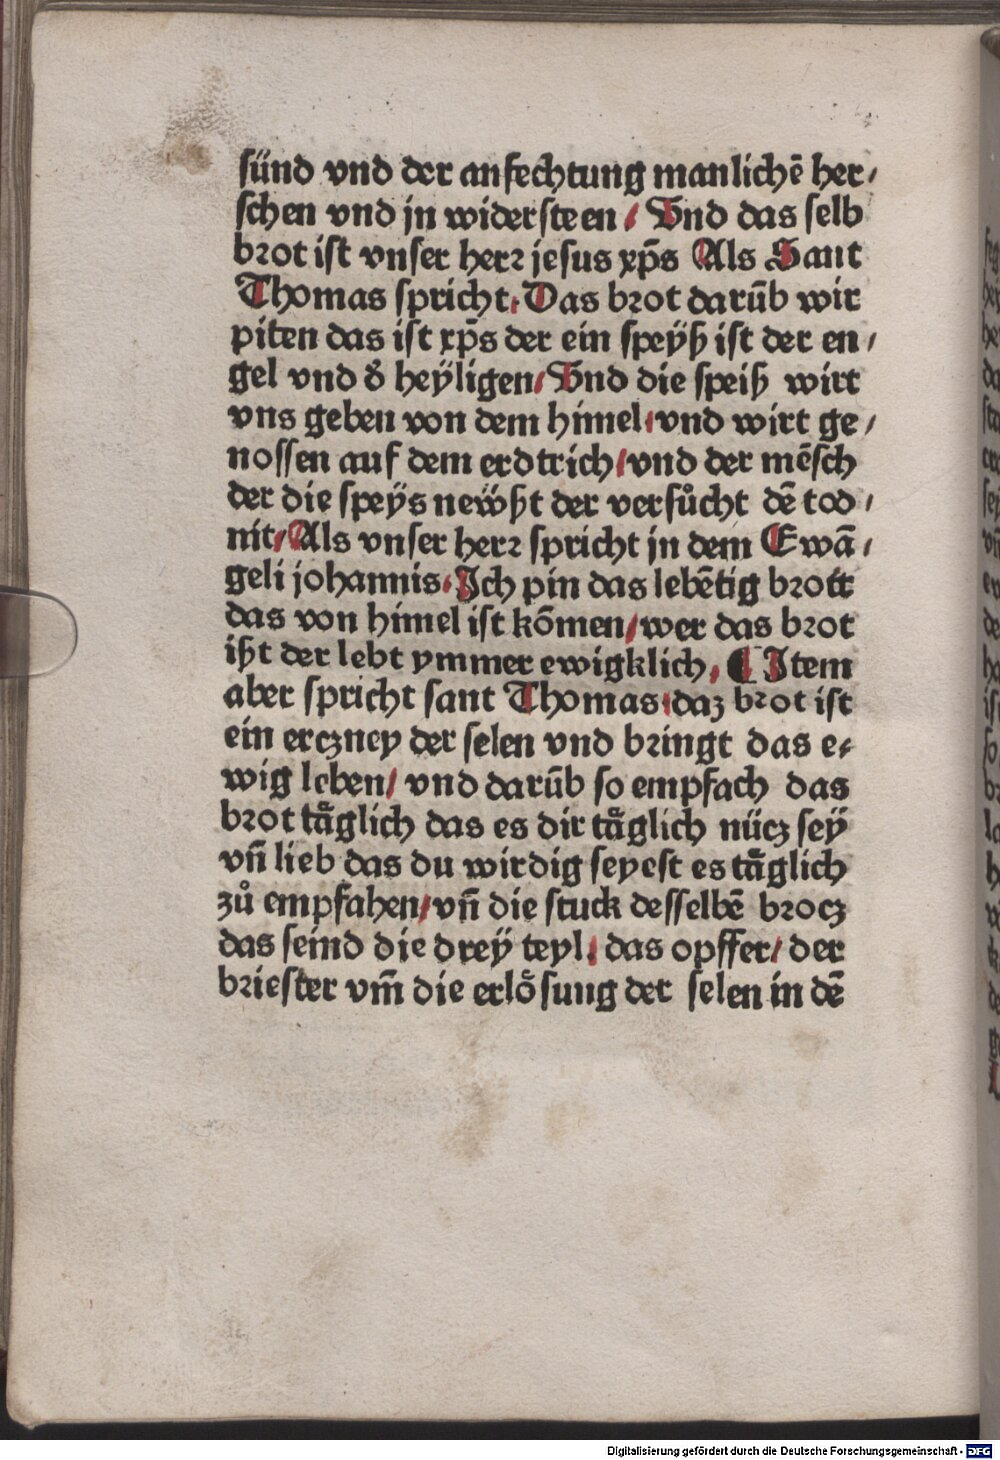 sünd vnd der anfechtung manlichē her⸗
schen vnd jn widersteen / Vnd das selb
brot ist vnser herꝛ jesus xp̄s Als Sant
Thomas spricht. Das brot darūb wir
piten das ist xp̄s der ein speyß ist der en⸗
gel vnd d̓ heÿligen / Vnd die speiß wirt
vns geben von dem himel / vnd wirt ge⸗
nossen auf dem erdtrich / vnd der mēsch
der die speÿs neẅßt der versůcht dē tod⸗
nit / Als vnser herꝛ spricht jn dem Ewā⸗
geli johannis. Ich pin das lebētig brott
das von himel ist kōmen / wer das brot
ißt der lebt ymmer ewigklich. ¶ Item
aber spricht sant Thomas. daz brot ist
ein erczney der selen vnd bringt das e⸗
wig leben / vnd darūb so empfach das
brot tåglich das es dir tåglich nücz seÿ
vn̄ lieb das du wirdig seyest es tåglich
zů empfahen / vn̄ die stuck desselbē brocz
das seind die dreÿ teyl. das opffer / der
briester vm̄ die erlősung der selen in dē
Digitalisierung gefördert durch die Deutsche Forschungsgemeinschaft - DFG